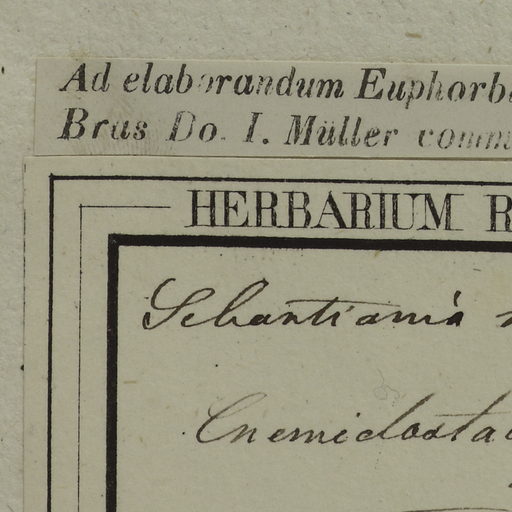 Ad elaborandum Euphorb
Bras Do. I. Müller comm
HERBARIUM R
Sebantiania
Cnemidosta